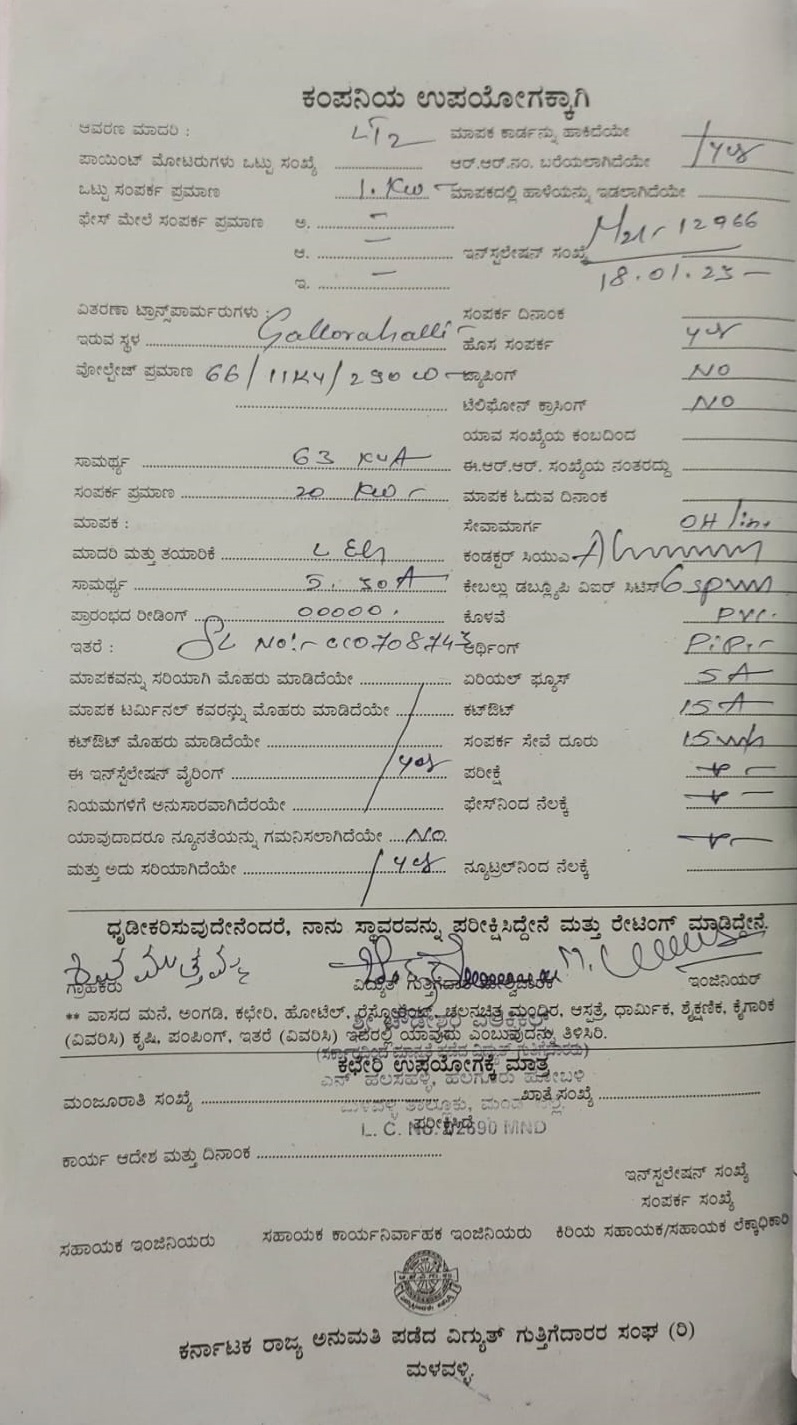 ಕಂಪನಿಯ ಉಪಯೋಗಕ್ಕಾಗಿ
ಆವರಣ ಮಾದರಿ : LT2 ಮಾಪಕ ಕಾರ್ಡನ್ನು ಹಾಕಿದೆಯೇ
ಪಾಯಿಂಟ್ ಮೋಟರುಗಳು ಒಟ್ಟು ಸಂಖ್ಯೆ ಆರ್.ಆರ್.ನಂ. ಬರೆಯಲಾಗಿದೆಯೇ yes
ಒಟ್ಟು ಸಂಪರ್ಕ ಪ್ರಮಾಣ 1. KW ಮಾಪಕದಲ್ಲಿ ಹಾಳೆಯನ್ನು ಇಡಲಾಗಿದೆಯೇ
ಫೇಸ್ ಮೇಲೆ ಸಂಪರ್ಕ ಪ್ರಮಾಣ ಅ. –
ಆ. – ಇನ್‌ಸ್ಟಲೇಷನ್ ಸಂಖ್ಯೆ 12966
ಇ. – 18.01.23
ವಿತರಣಾ ಟ್ರಾನ್ಸ್‌ಪಾರ್ಮರುಗಳು : ಸಂಪರ್ಕ ದಿನಾಂಕ
ಇರುವ ಸ್ಥಳ ಹೊಸ ಸಂಪರ್ಕ yes
ವೋಲ್ಟೇಜ್ ಪ್ರಮಾಣ 66/11KV/ ಟ್ಯಾಪಿಂಗ್ NO
ಟೆಲಿಫೋನ್ ಕ್ರಾಸಿಂಗ್ NO
ಯಾವ ಸಂಖ್ಯೆಯ ಕಂಬದಿಂದ
ಸಾಮರ್ಥ್ಯ 63 KVA ಈ.ಆರ್.ಆರ್. ಸಂಖ್ಯೆಯ ನಂತರದ್ದು
ಸಂಪರ್ಕ ಪ್ರಮಾಣ 20 KW ಮಾಪಕ ಓದುವ ದಿನಾಂಕ
ಮಾಪಕ : ಸೇವಾಮಾರ್ಗ OH line
ಮಾದರಿ ಮತ್ತು ತಯಾರಿಕೆ ಕಂಡಕ್ಟರ್ ಸಿಯುಎ
ಸಾಮರ್ಥ್ಯ 5. 30A ಕೇಬಲ್ಲು ಡಬ್ಲ್ಯೂಪಿ ವಿಐರ್ ಸಿಟಿಸ್
ಪ್ರಾರಂಭದ ರೀಡಿಂಗ್ 00000. ಕೊಳವೆ PVC.
ಇತರೆ : SL No:- ಆರ್ಥಿಂಗ್
ಮಾಪಕವನ್ನು ಸರಿಯಾಗಿ ಮೊಹರು ಮಾಡಿದೆಯೇ ಏರಿಯಲ್ ಫ್ಯೂಸ್ 5A
ಮಾಪಕ ಟರ್ಮಿನಲ್ ಕವರನ್ನು ಮೊಹರು ಮಾಡಿದೆಯೇ ಕಟ್‌ಔಟ್ 15A
ಕಟ್‌ಔಟ್ ಮೊಹರು ಮಾಡಿದೆಯೇ ಸಂಪರ್ಕ ಸೇವೆ ದೂರು
ಈ ಇನ್‌ಸ್ಟೆಲೇಷನ್ ವೈರಿಂಗ್ yes ಪರೀಕ್ಷೆ
ನಿಯಮಗಳಿಗೆ ಅನುಸಾರವಾಗಿದೆರಯೇ ಫೇಸ್‌ನಿಂದ ನೆಲಕ್ಕೆ
ಯಾವುದಾದರೂ ನ್ಯೂನತೆಯನ್ನು ಗಮನಿಸಲಾಗಿದೆಯೇ NO.
ಮತ್ತು ಅದು ಸರಿಯಾಗಿದೆಯೇ yes ನ್ಯೂಟ್ರಲ್‌ನಿಂದ ನೆಲಕ್ಕೆ
ಧೃಡೀಕರಿಸುವುದೇನೆಂದರೆ, ನಾನು ಸ್ಥಾವರವನ್ನು ಪರೀಕ್ಷಿಸಿದ್ದೇನೆ ಮತ್ತು ರೇಟಿಂಗ್ ಮಾಡಿದ್ದೇನೆ.
ಗ್ರಾಹಕರು ವಿದ್ಯುತ್ ಇಂಜಿನಿಯರ್
** ವಾಸದ ಮನೆ, ಅಂಗಡಿ, ಕಛೇರಿ, ಹೋಟೆಲ್, ರೆಸ್ಟೋರೆಂಟ್, ಚಲನಚಿತ್ರ ಮಂದಿರ, ಆಸತ್ರೆ, ಧಾರ್ಮಿಕ, ಶೈಕ್ಷಣಿಕ, ಕೈಗಾರಿಕ
(ವಿವರಿಸಿ) ಕೃಷಿ, ಪಂಪಿಂಗ್, ಇತರೆ (ವಿವರಿಸಿ) ಇದರಲ್ಲಿ ಯಾವುದು ಎಂಬುವುದನ್ನು ತಿಳಿಸಿರಿ.
ಕಛೇರಿ ಉಪಯೋಗಕ್ಕೆ ಮಾತ್ರ
ಮಂಜೂರಾತಿ ಸಂಖ್ಯೆ ಖಾತೆ ಸಂಖ್ಯೆ
ಪರೀಕ್ಷಿಸಿದೆ
ಕಾರ್ಯ ಆದೇಶ ಮತ್ತು ದಿನಾಂಕ
ಇನ್‌ಸ್ಟಲೇಷನ್ ಸಂಖ್ಯೆ
ಸಂಪರ್ಕ ಸಂಖ್ಯೆ
ಸಹಾಯಕ ಇಂಜಿನಿಯರು ಸಹಾಯಕ ಕಾರ್ಯನಿರ್ವಾಹಕ ಇಂಜಿನಿಯರು ಕಿರಿಯ ಸಹಾಯಕ/ಸಹಾಯಕ ಲೆಕ್ಕಾಧಿಕಾರಿ
ಕರ್ನಾಟಕ ರಾಜ್ಯ ಅನುಮತಿ ಪಡೆದ ವಿದ್ಯುತ್ ಗುತ್ತಿಗೆದಾರರ ಸಂಘ (ರಿ)
ಮಳವಳ್ಳಿ.